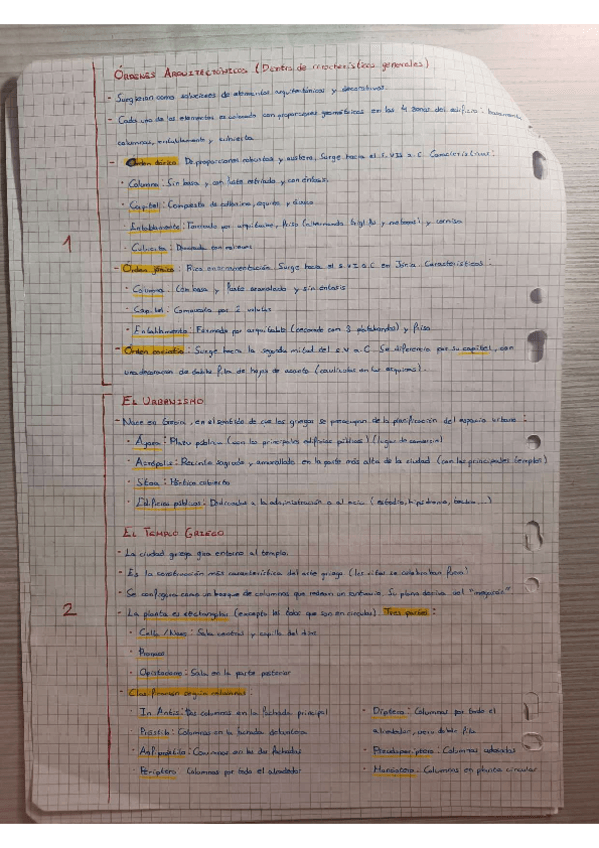 ÓRDENES ARQUITECTÓNICOS (Dentro de características generales)
- Surgieron como soluciones de elementos arquitectónicos y decorativos.
- Cada uno de los elementos es creado con proporciones geométricas en las 4 zonas del edificio: basamento,
columnas, entablamento y cubierta
- Orden dórico: De proporciones robustas y austero. Surge hacia el s. VII a.C. Características:
· Columna: Sin basa y con fuste estriado y con énfasis.
· Capitel: Compuesto de collarino, equino y ábaco
· Entablamento: Formado por arquitrabe, friso (alternando triglifos y metopas) y cornisa
· Cubierta:
1
- Orden jónico: Rica ornamentación. Surge hacia el s. VI a.C. en Jonia. Características:
· Columna: Con basa y fuste acanalado y sin énfasis
· Capitel: Compuesto por 2 volutas
· Entablamento: Formado por arquitrabe (decorado con 3 platabandas) y friso
- Orden corintio: Surge hacia la segunda mitad del s. V a.C. Se diferencia por su capitel, con
una decoración de doble fila de hojas de acanto (caulículos en las esquinas).
EL URBANISMO
- Nace en Grecia, en el sentido de que los griegos se preocupan de la planificación del espacio urbano:
· Ágora: Plaza pública (con los principales edificios públicos) (lugar de comercio)
· Acrópolis: Recinto sagrado y amurallado en la parte más alta de la ciudad (con los principales templos)
· Stoa: Pórtico abierto
· Edificios públicos: Dedicados a la administración o al ocio (estadio, hipódromo, teatro...)
EL TEMPLO GRIEGO
- La ciudad griega gira entorno al templo.
- Es la construcción más característica del arte griego (los ritos se celebraban fuera)
- Se configura como un bosque de columnas que rodean un santuario. Su planta deriva del "megarón"
2
- La planta es rectangular (excepto las tholos que son en circular). Tres partes:
· Cella / Naos: Sala central y capilla del dios
· Pronaos
· Opistodomo: Sala en la parte posterior
- Clasificación según columnas:
· In Antis: Dos columnas en la fachada principal
· Próstilo: Columnas en la fachada delantera
· Anfipróstilo: Columnas en las dos fachadas
· Períptero: Columnas por todo el alrededor
· Díptero: Columnas por todo el
alrededor, pero doble fila
· Pseudoperíptero: Columnas adosadas
· Monóptero: Columnas en planta circular